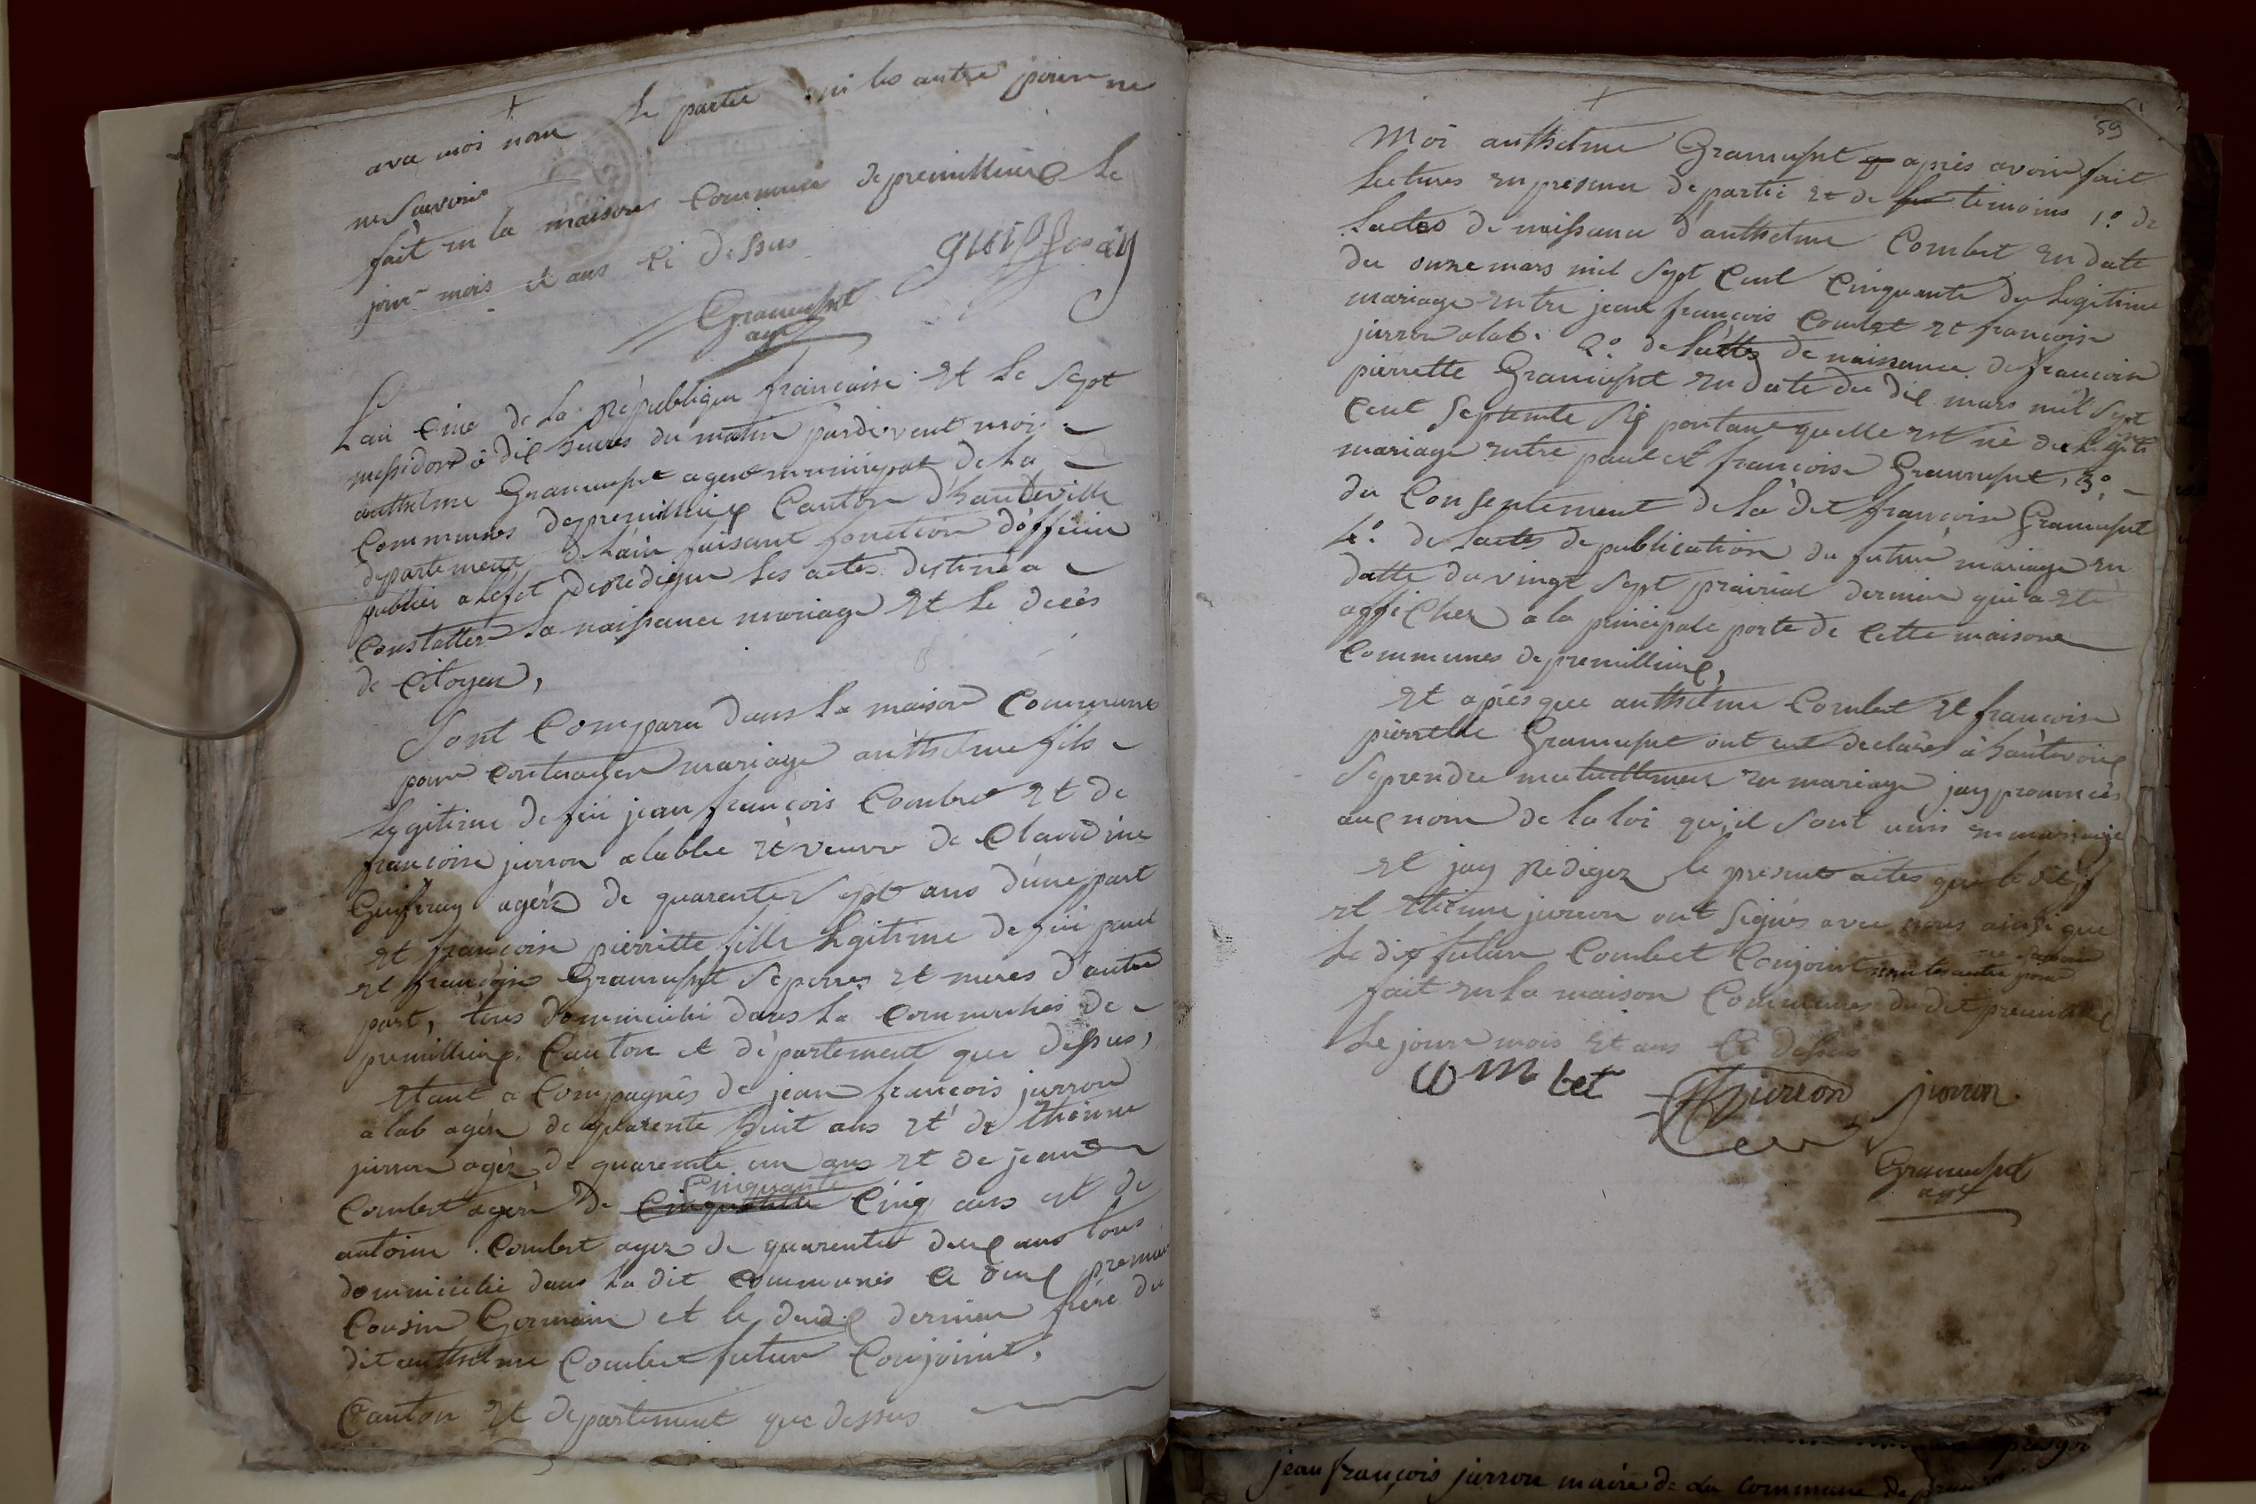 avec moi non le partie ni les autre pour ne
ne Savoir
fait en la maison Commune de premillieux le
jour mois et ans ci dessus
guiffray
Gramusset
agt
L'an cinq de la République françaisse et le Sept
messidor à dix heures du matin pardevent moi
anthelme Gramusset agent municipal de la
Communes de premillieux Canton d'hauteville
departement de lain faisant fonction d'officier
public a l'éfet de redigér les actes destiné a
Constatter la naissance mariage et le decès
de Citoyen,
Sont Comparu dans la maison Commune
pour contracter mariage anthelme fils
legitime de feu jean françois Combet et de
françoise jurron alablee et veuve de Claudine
Guiffray agéz de quarentes Sept ans d'une part
et françoise pierrette fille legitime de feu paul
et françoise Gramusset Se peres et meres d'autre
part, tous dommicilié dans la Communes de
premillieux Canton et département que dessus,
Etant a Compagnés de jean françois jurron
a lab agéz de quarente huit ans et de Ethienne
jurron agéz de quarente un ans et de jean
Cinquante
Combet agéz de Cinquante Cinq ans et de
antoine Combet agez de quarentes deux ans tous
dommicilié dans la dit Communes le deux premier
Cousin Germain et le deux dernier frère du
dit anthelme Combet futur Conjoint,
Canton et departement que dessus
59
Moi anthelme Gramusset q après avoir fait
lectures en presence de partie et de leur temoins 1.° de
lactes de naissance d'anthelme Combet en date
du onze mars mil Sept Cent Cinquante du legitime
mariage entre jean françois Combet et françoise
jurron alab. 2.° de lactes de naissance de françoise
pierrette Gramusset en date du dix mars mil Sept
Cent Septente Six portant quelle est né du legitime
mariage entre paul et françoise Gramusset, 3.°
du Consentement de la dit françoise Gramusset
4.° de lactes de publication du futur mariage en
datte du vingt Sept prairial dernier qui a été
afficher a la principale porte de Cette maison
Communes de premillieux,
Et après que anthelme Combet et françoise
pierrette Gramusset ont eut declarer à haute voix
Se prendre mutuellement en mariage jay prononcés
aux nom de la loi qu'il Sont unis en mariage
et jay Rédigez le present actes que le dit jf
et Etienne jurron ont Signés avec nous ainsi que
ne Savoir
le dit futur Combet Conjoint non les autre pour
fait en la maison Communes du dit premillieux
le jour mois et ans Ci dessus
Combet
jurron jurron
Gramusset
agt
jean françois jurron maire de la Commune de